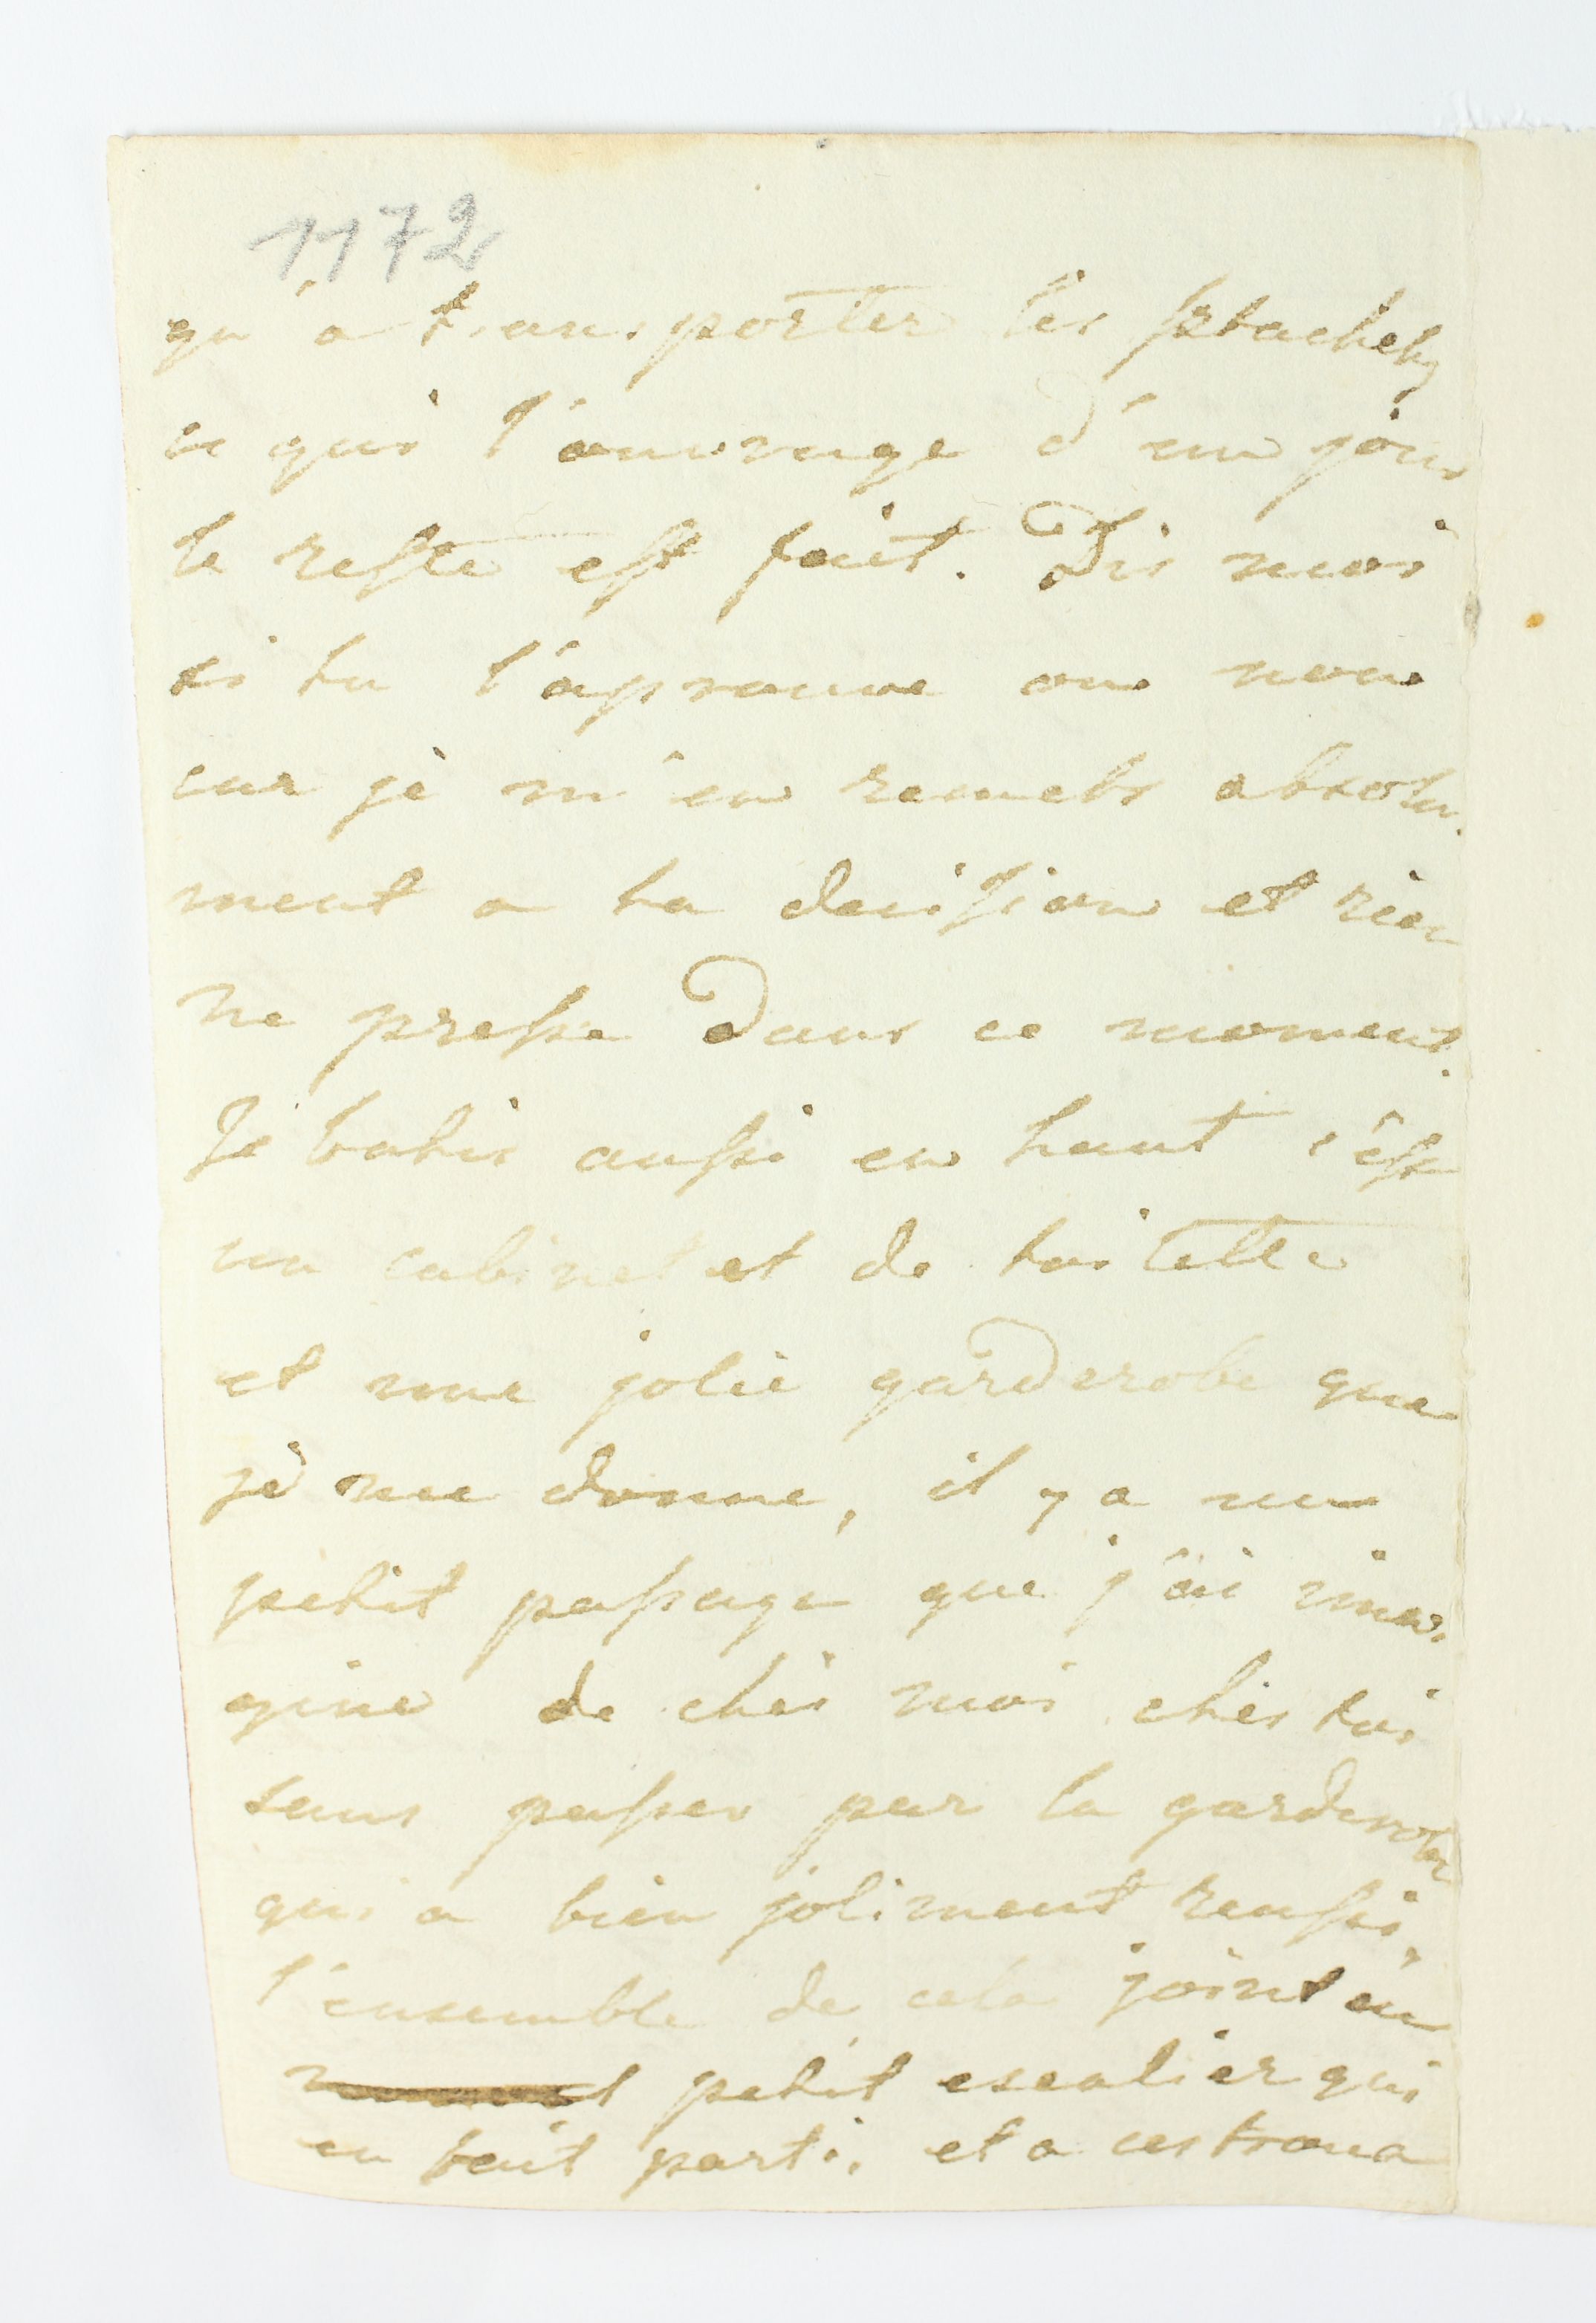 1172
qu'a transporter les sztachety
ce qui l'ouvrage d'un jour
le reste est fait. Dis moi
si tu l'aprouve ou non
car je m'en remets absolu-
ment a ta decission et rien
ne presse dans ce moment.
Je batis aussi en haut c'est
un cabinet et de toilette
et une jolie garderobe que
je me donne, il y a un
petit passage que j'ai ima-
giné de chés moi chés toi
sans passer par la garderobe
qui a bien joliment reussi,
l'ensemble de cela joint au
petit escalier qui
en fait parti, et a ces